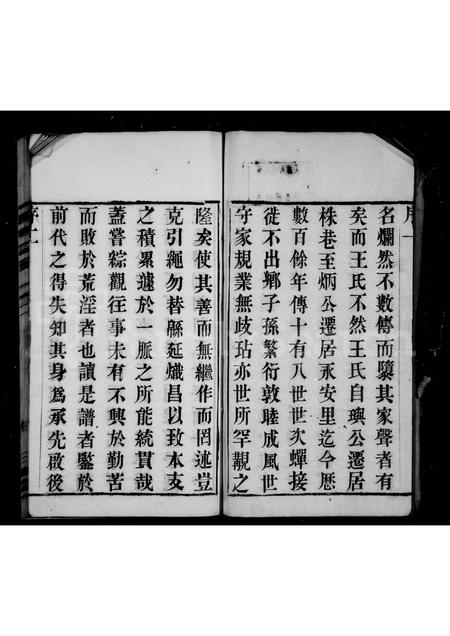 序一
名爛然不數傳而隳其家聲者有
矣而王氏不然王氏自璵公遷居
株巷至炳公遷居永安里迄今歷
數百餘年傳十有八世世次蟬接
徙不出鄉子孫繁衍敦睦成風世
守家規業無歧玷亦世所罕覯之
隆矣使其善而無繼作而罔述豈
克引繩勿替緜延熾昌以致本支
之積累遽於一脈之所能統貫哉
蓋嘗綜觀往事未有不興於勤苦
而敗於荒淫者也讀是譜者鑒於
前代之得失知其身為承先啟後
序二